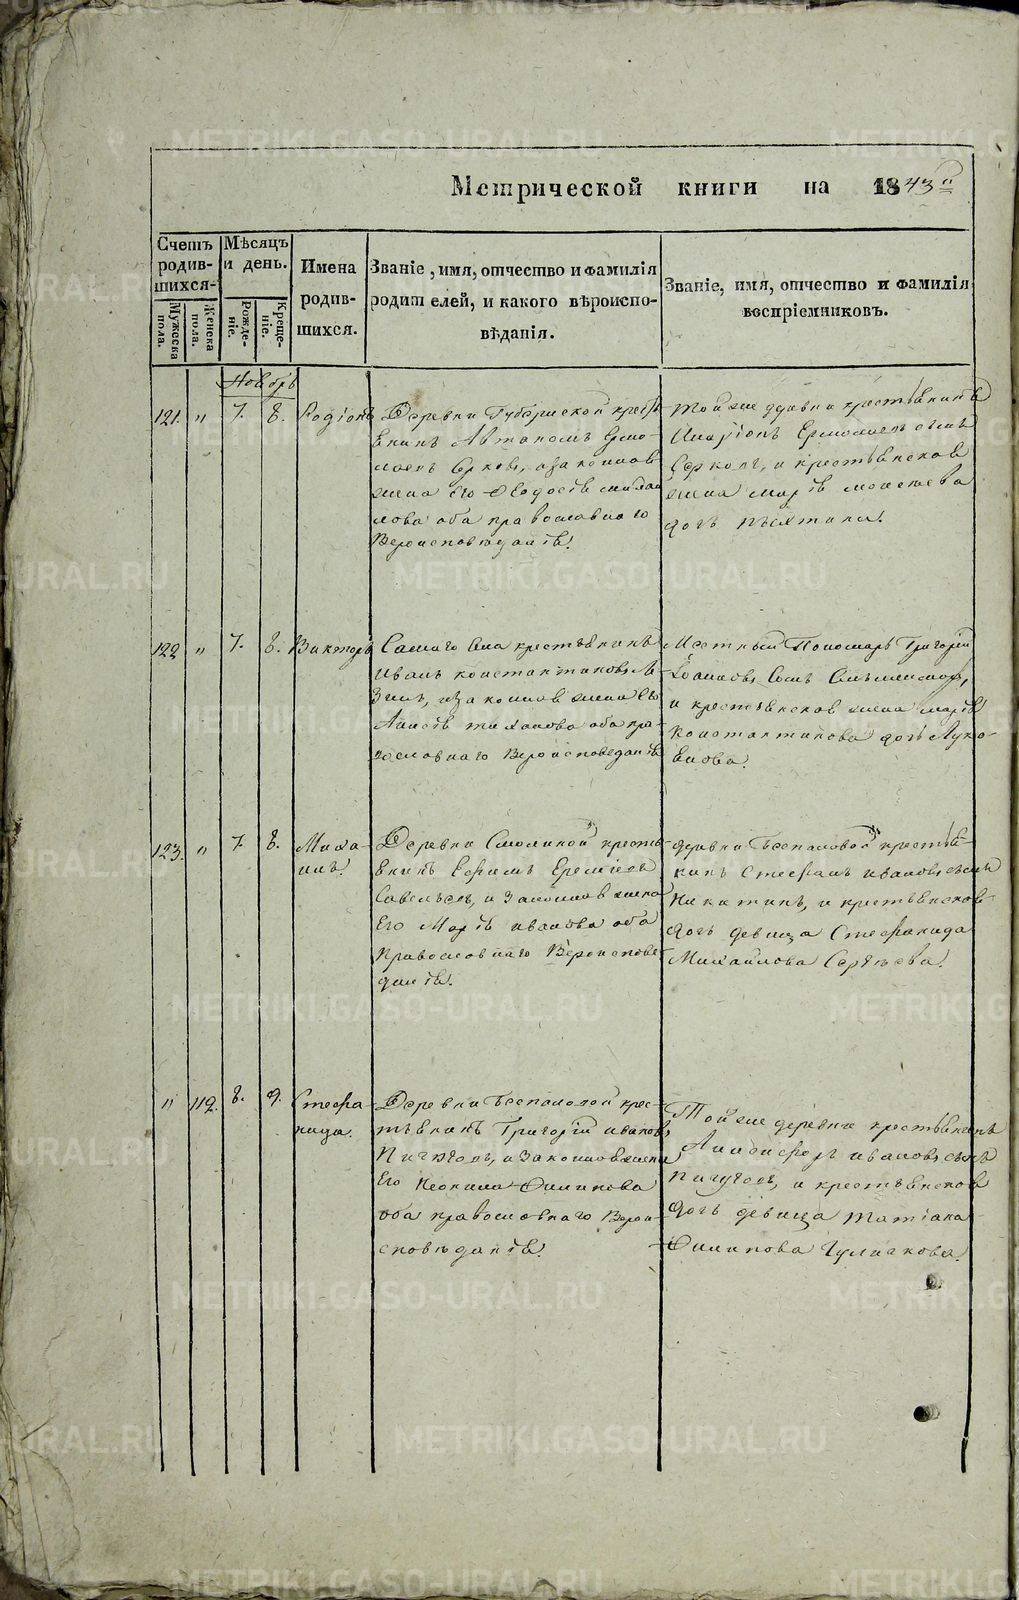 Метрической книги на 1843й
Счетъ родившихся
Мужеска пола.
Женска пола.
Мѣсяцъ и день.
Рожденіе.
Крещеніе.
Имена родившихся.
Званіе, имя, отчество и фамилія
родителей, и какого вѣроиспо-
вѣданія.
Званіе, имя, отчество и фамилія
воспріемниковъ.
Ноябрь
121. " 7. 8. Родіонъ
Деревни Губернской кресть
янинъ Автаномъ Ермо-
лаевъ, законная
жена его Феодосія
лова оба православнаго
Вероисповѣданія.
Той же деревни крестьянинъ
Иларіонъ Ермолаевъ сынъ
и крестьянская
жена Марія Моисеева
дочь
122 " 7. 8. Викторъ
Самаго села крестьянинъ
Иванъ Константиновъ
законная жена его
оба пра-
вославнаго Вероисповеданія
Местный Пономарь Григорій
Іоанновъ Сынъ
и крестьянская жена Марія
Константинова дочь Луко-
янова.
123. " 7. 8. Миха-
илъ.
Деревни Смолиной кресть
янинъ Ефимъ Еремѣевъ
Савельевъ, и Законная жена
Его Марія иванова оба
Православнаго Вероисповѣ
данія.
деревни Беспаловой крестья-
нинъ Стефанъ ивановъ сынъ
Никитинъ, и крестьянская
дочь девица Стефанида
Михайлова Сергѣева.
" 112. 8. 9. Стефа-
нида.
Деревни Беспаловой крес-
тьянинъ Григорій ивановъ
Пичуговъ, и Законная жена
Его Неонила Филипова
оба православнаго Верои-
споведанія.
Той же деревни крестьянинъ
ивановъ сынъ
Пичуговъ, и крестьянская
дочь девица Татіана
Филипова
METRIKI.GASO-URAL.RU